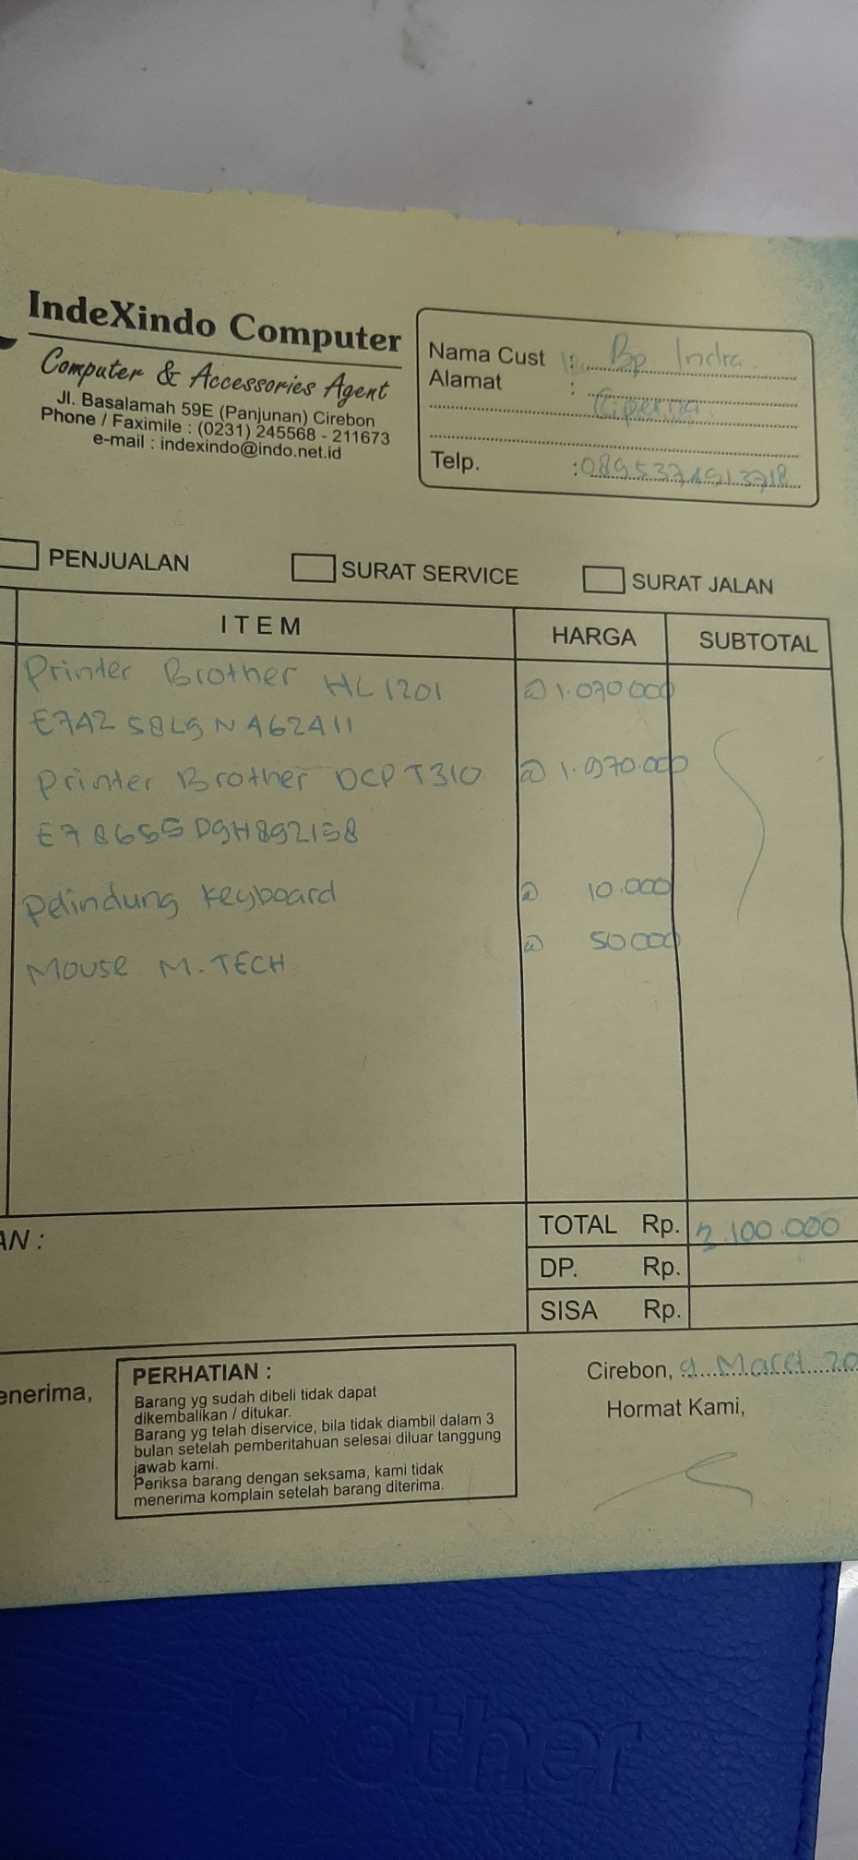 IndeXindo Computer
Computer & Accessories Agent
Jl. Basalamah 59E (Panjunan) Cirebon
Phone / Faximile : (0231) 245568 - 211673
e-mail : indexindo@indo.net.id
Nama Cust : Bp Indra
Alamat :
Telp. :
PENJUALAN SURAT SERVICE SURAT JALAN
ITEM HARGA SUBTOTAL
Printer Brother HL 1201 @ 1.070 000
E742 58L9 N A62411
Printer Brother DCP T310 @ 1.970.000
Pelindung Keyboard @ 10.000
Mouse M.TECH @ 50 000
AN :
TOTAL Rp. 3.100.000
DP. Rp.
SISA Rp.
enerima,
PERHATIAN :
Barang yg sudah dibeli tidak dapat
dikembalikan / ditukar.
Barang yg telah diservice, bila tidak diambil dalam 3
bulan setelah pemberitahuan selesai diluar tanggung
jawab kami.
Periksa barang dengan seksama, kami tidak
menerima komplain setelah barang diterima.
Cirebon, 9 Maret 20
Hormat Kami,
brother